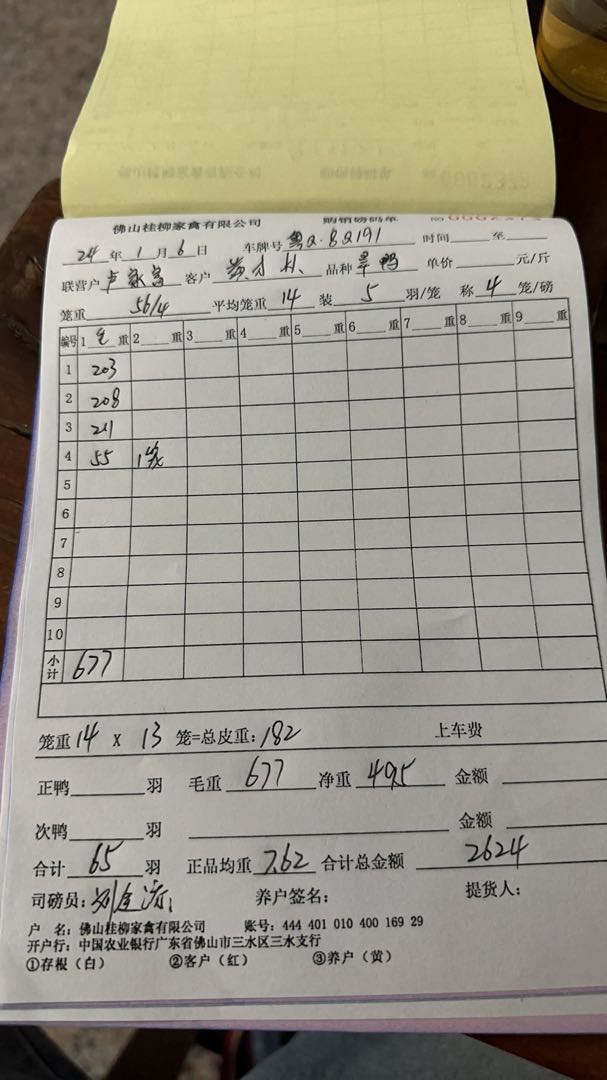 佛山桂柳家禽有限公司 购销磅码单 № 0002373
24年1月6日 车牌号 粤Q·8Q191 时间 至
联营户 卢家富 客户 品种 单价 元/斤
笼重 56/4 平均笼重 14 装 5 羽/笼 称 4 笼/磅
编号 1 毛 重 2 重 3 重 4 重 5 重 6 重 7 重 8 重 9 重
1 203
2 208
3 211
4 55 1笼
5
6
7
8
9
10
小计 677
笼重 14 X 13 笼=总皮重: 182 上车费
正鸭 羽 毛重 677 净重 495 金额
次鸭 羽 金额
合计 65 羽 正品均重 7.62 合计总金额 2624
司磅员: 养户签名: 提货人:
户 名: 佛山桂柳家禽有限公司 账号: 444 401 010 400 169 29
开户行: 中国农业银行广东省佛山市三水区三水支行
①存根（白） ②客户（红） ③养户（黄）